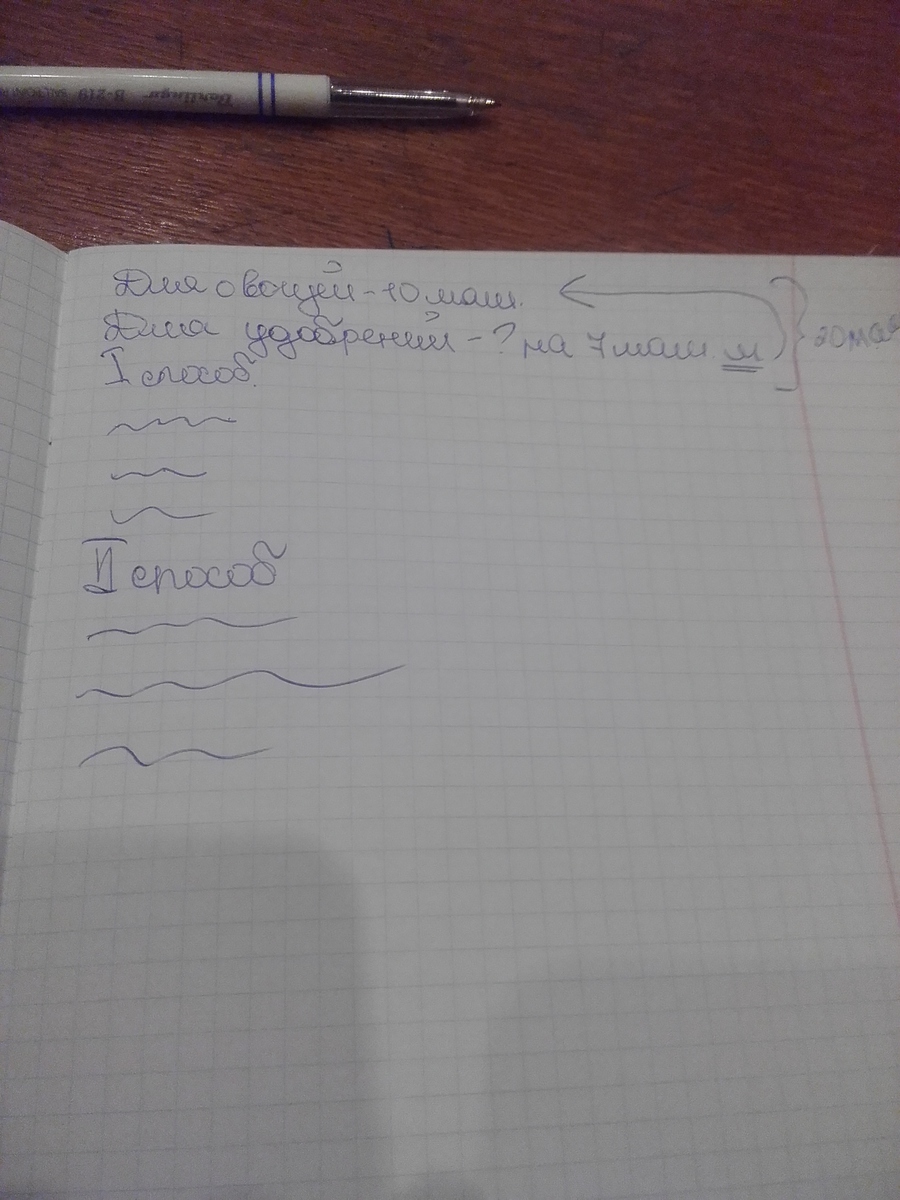 B-219 Berlingo
Для овощей - 10 маш.
Для удобрений - ? на 7 маш. м } 20 маш
I способ.
II способ